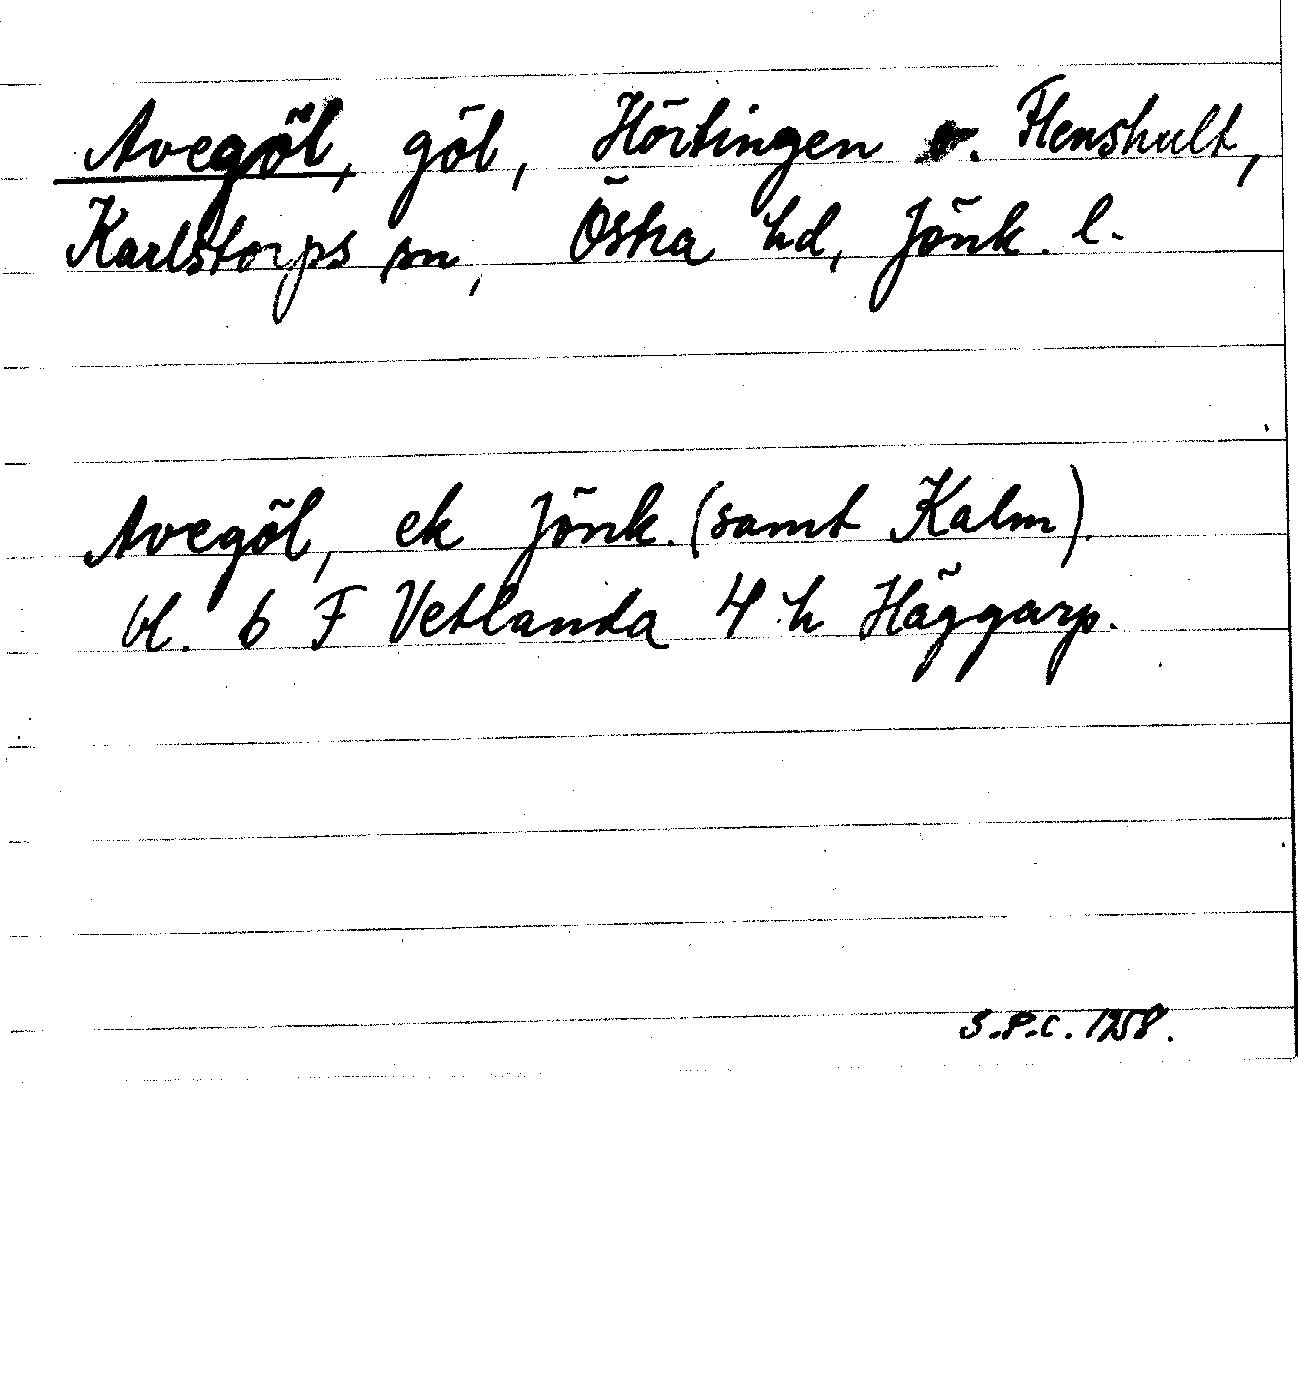 Avegöl, göl, Hörtingen o. Flenshult,
Karlstorps sn, Östra hd, Jönk. l.
Avegöl, ek Jönk. (samt Kalm).
bl. 6 F Vetlanda 4 h Häggarp.
S.P.C. 1258.